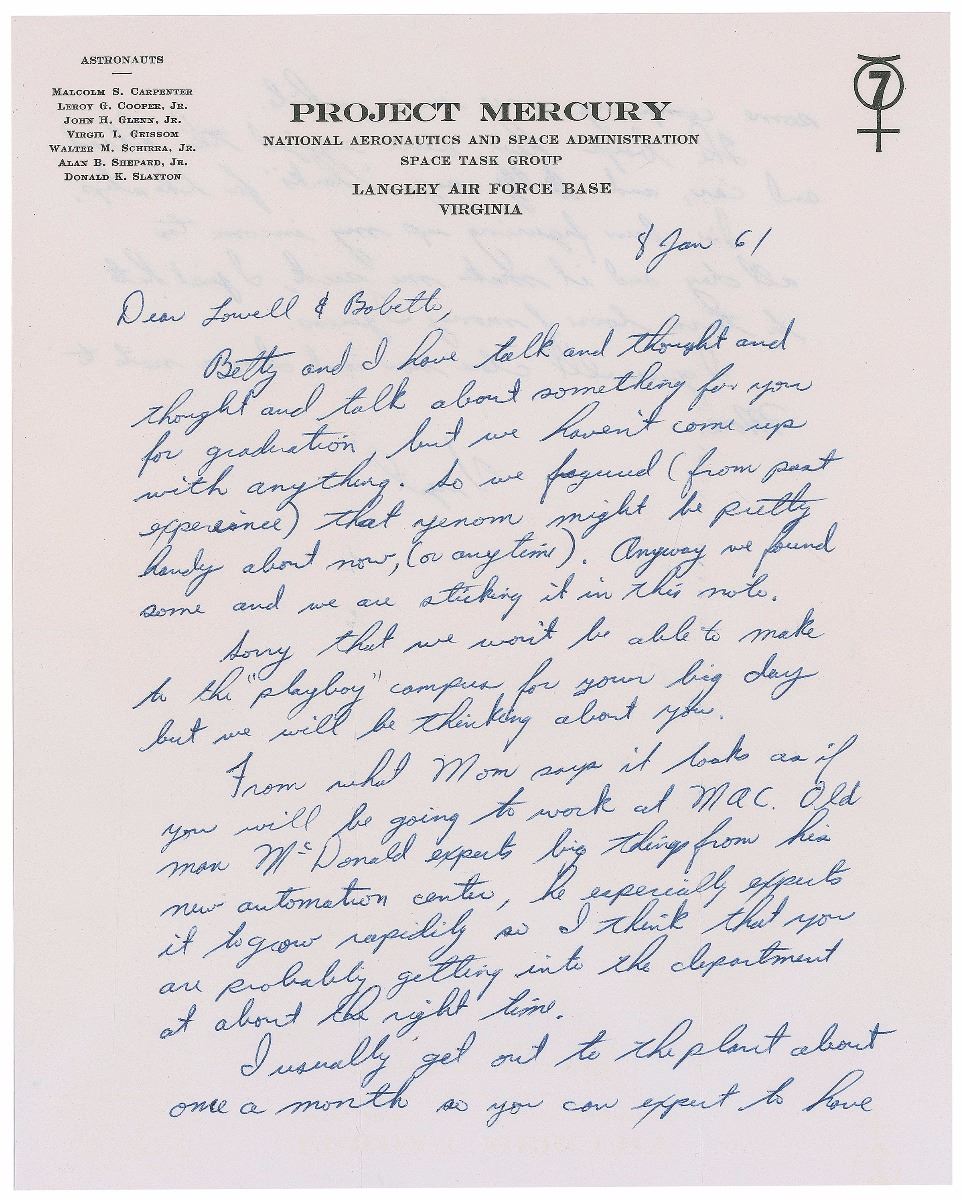 ASTRONAUTS
MALCOLM S. CARPENTER
LEROY G. COOPER, JR.
JOHN H. GLENN, JR.
VIRGIL I. GRISSOM
WALTER M. SCHIRRA, JR.
ALAN B. SHEPARD, JR.
DONALD K. SLAYTON
PROJECT MERCURY
NATIONAL AERONAUTICS AND SPACE ADMINISTRATION
SPACE TASK GROUP
LANGLEY AIR FORCE BASE
VIRGINIA
7
8 Jan 61
Dear Lowell & Bobette,
Betty and I have talk and thought and
thought and talk about something for you
for graduation, but we haven't come up
with anything. So we fogured (from past
expereince) that yenom might be pretty
handy about now, (or anytime). Anyway we found
some and we are sticking it in this note.
Sorry that we won't be able to make
to the "playboy" campus for your big day
but we will be thinking about you.
From what Mom says it looks as if
you will be going to work at MAC. Old
man McDonald expects big things from his
new automation center, he especially expects
it to grow rapidily so I think that you
are probably getting into the department
at about the right time.
I usually get out to the plant about
once a month so you can expect to have